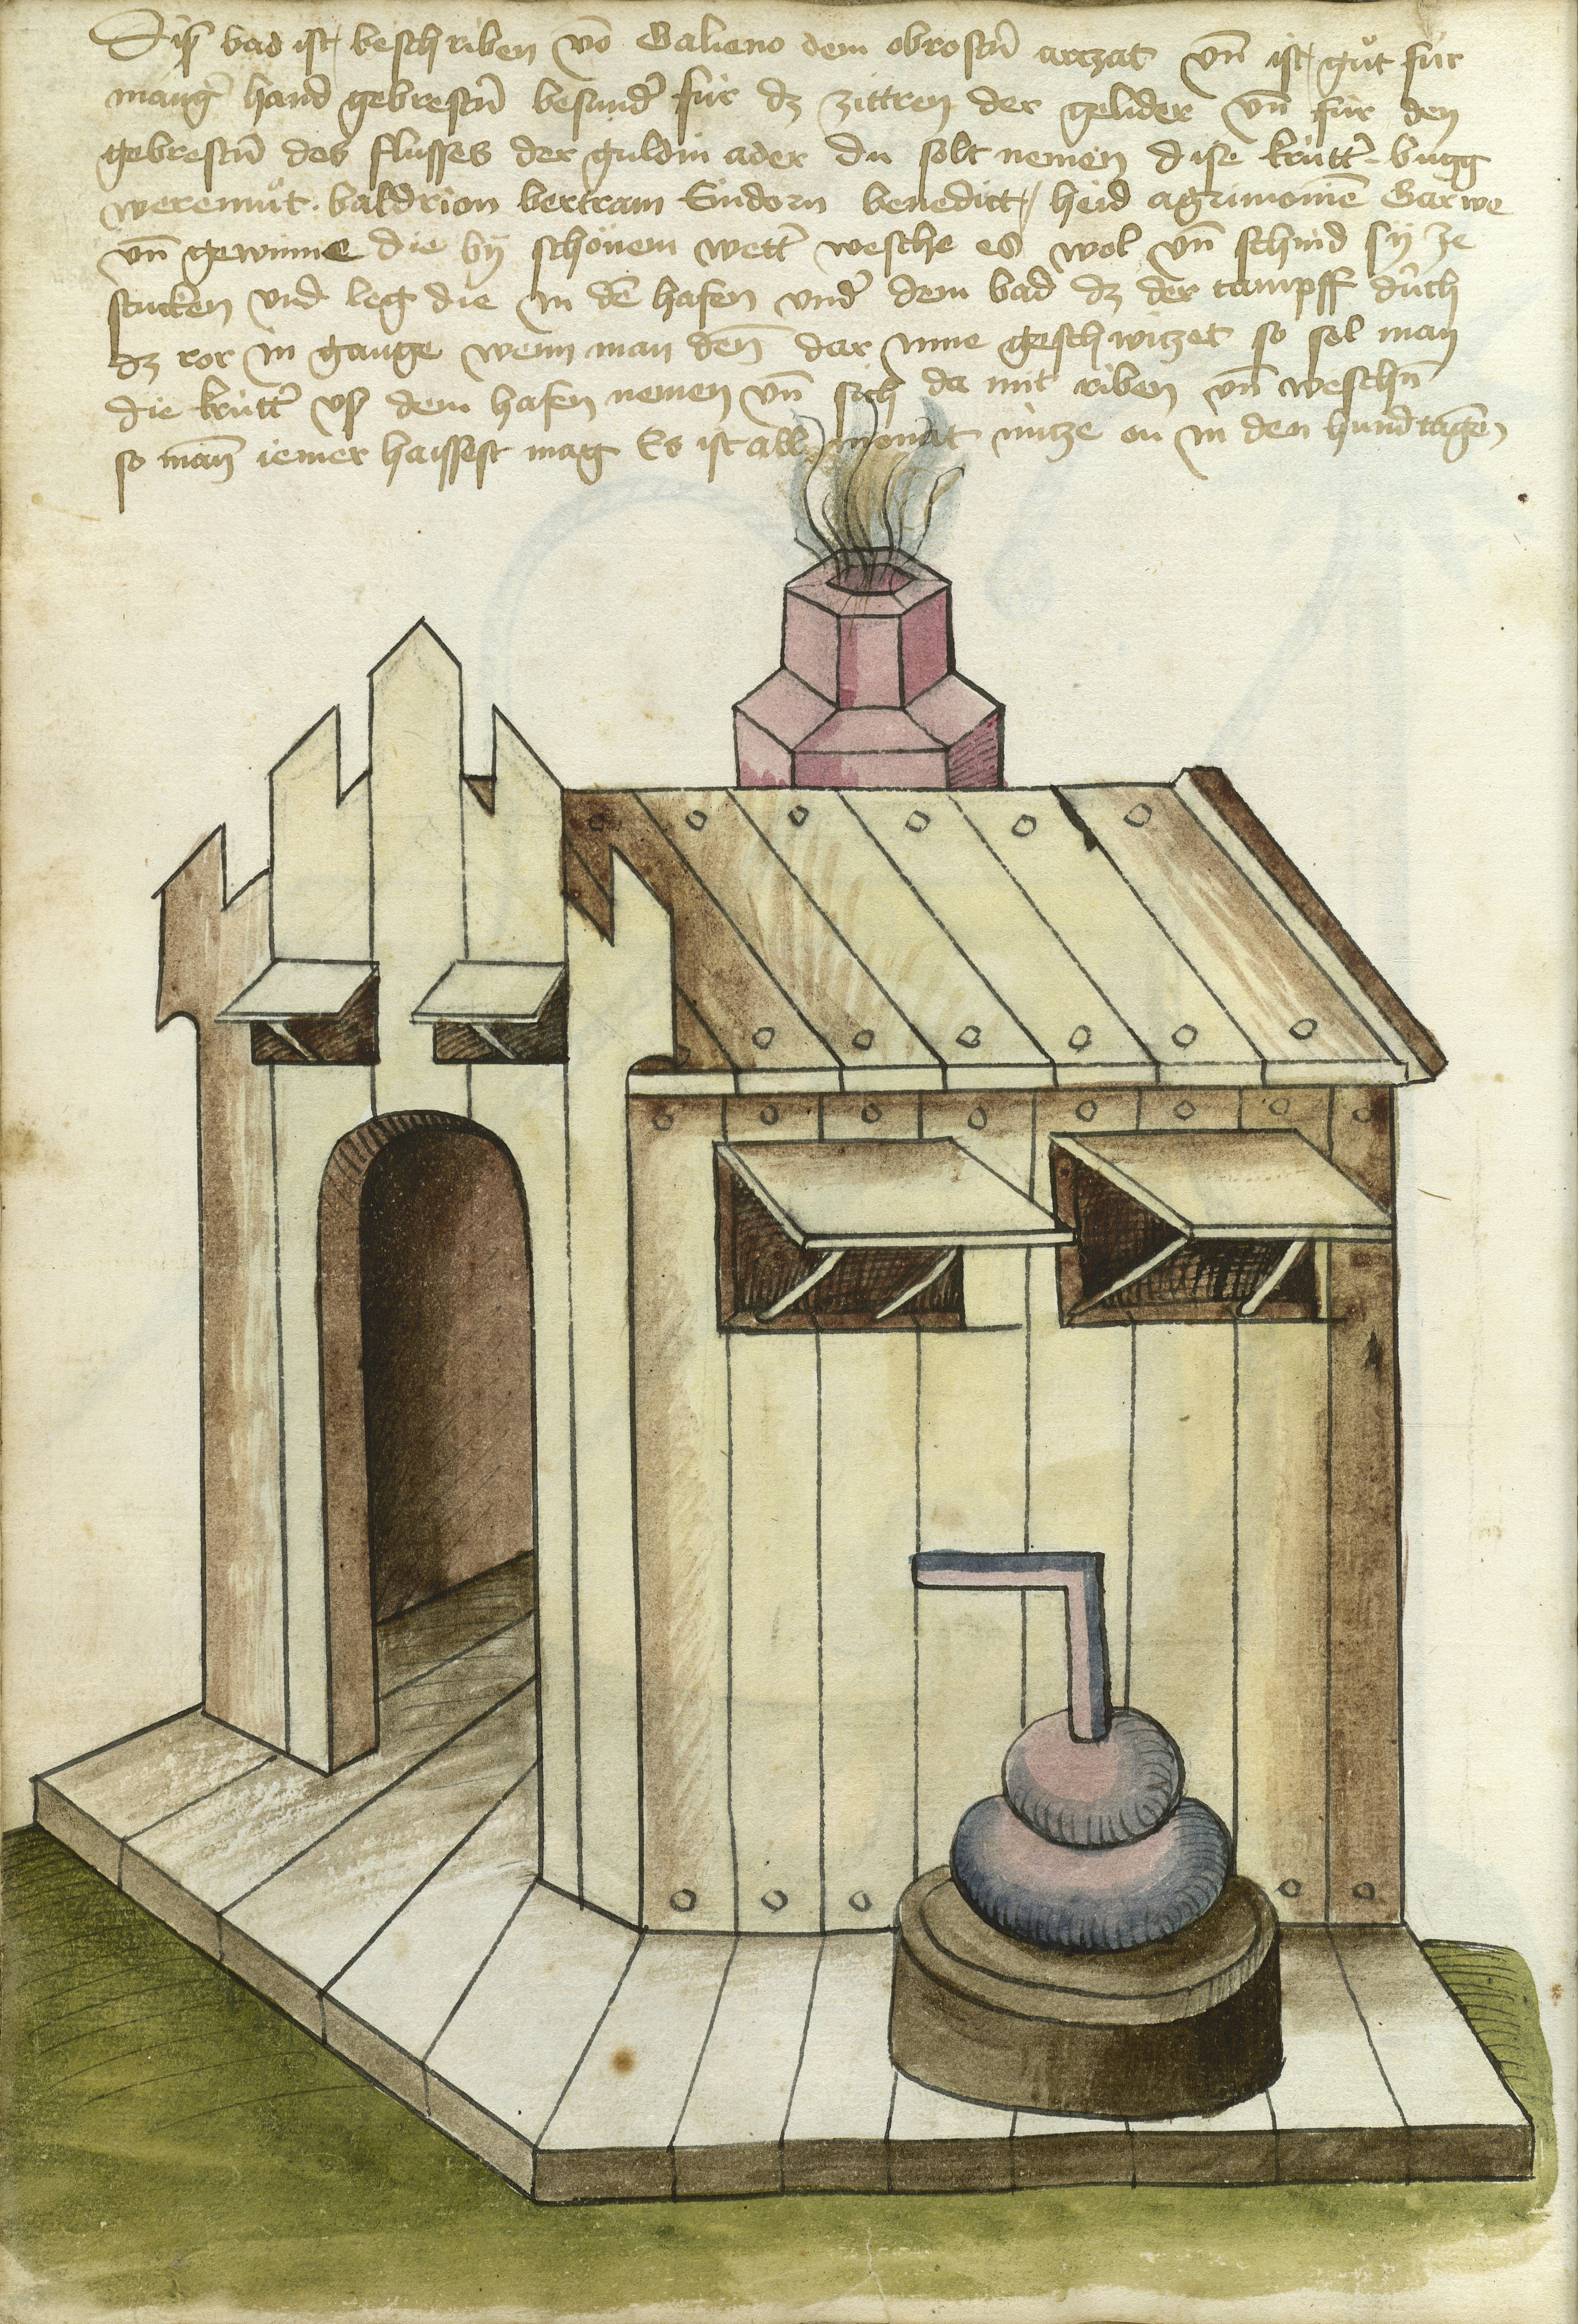 Diß bad ist beschriben vō Galieno dem obrostn̄ arczat vn̄ ist gůt für
mang̾ hand gebrestn̄ besund̾ für dz zittren der gelider vn̄ für den
gebrestn̄ des flusses der guldin ader du solt nemen dise krütt̾ bugg
weremůt baldrion bertram Endorn benedict heid agrimonien̄ Garwe
vn̄ gewinne die by schönem wett̾ wesche es wol vn̄ schnid sy ze
stucken vnd leg die in dē hafen vnd̾ dem bad dz der tampff durch
dz ror in gange wenn man den̄ dar inne geschwitzet so sol man
die krütt̾ vß dem hafen nemen vn̄ sich da mit riben vn̄ weschn̄
so man̄ iemer haissest mag Es ist all monat nütze on in den hundtagen